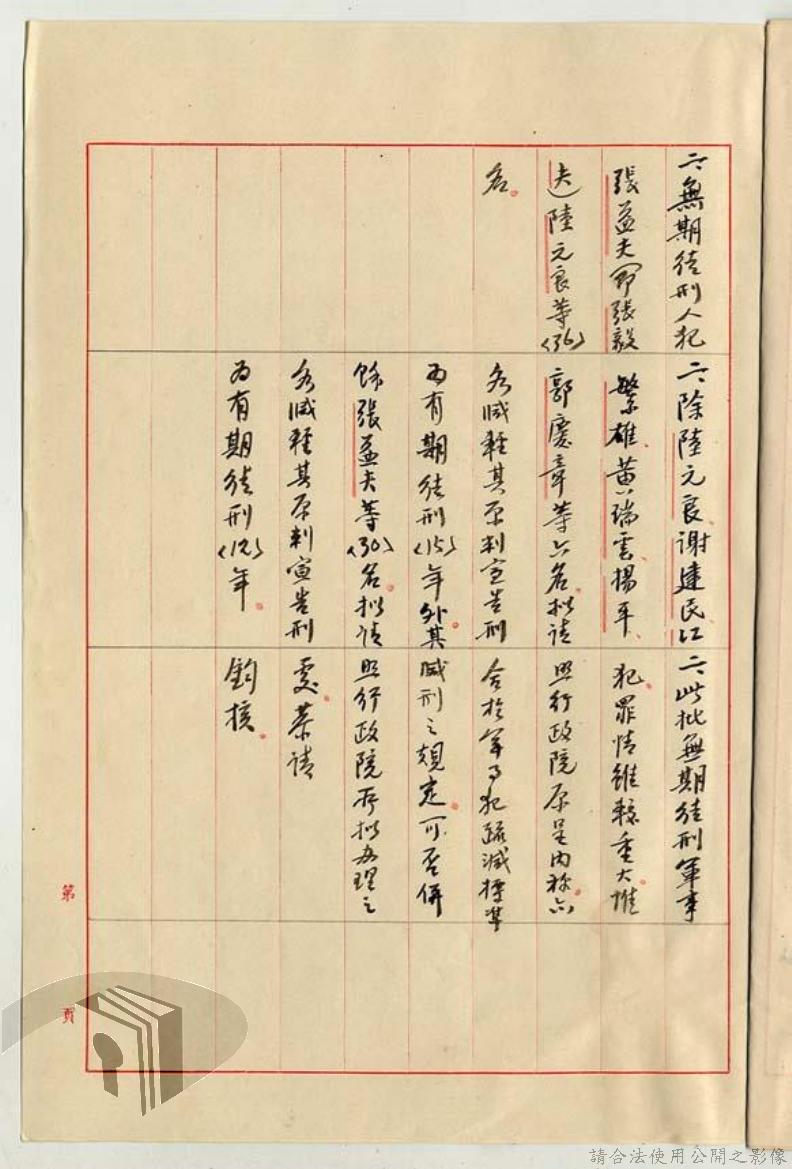 二、無期徒刑人犯
張益夫(即張毅
夫)陸元良等〈36〉
名。
二、除陸元良、謝建民、江
繁雄、黃瑞雲、楊平、
郭慶章等六名、擬請
各減輕其原判宣告刑
為有期徒刑〈15〉年外。其
餘張益夫等〈30〉名。擬請
各減輕其原判宣告刑
為有期徒刑〈12〉年。
二、此批無期徒刑軍事
犯。罪情雖較重大。惟
照行政院原呈內称。亦
合於軍事犯疏減標準
減刑之規定。可否併
照行政院所擬辦理之
處。恭請
鈞核。
第 頁
請合法使用公開之影像